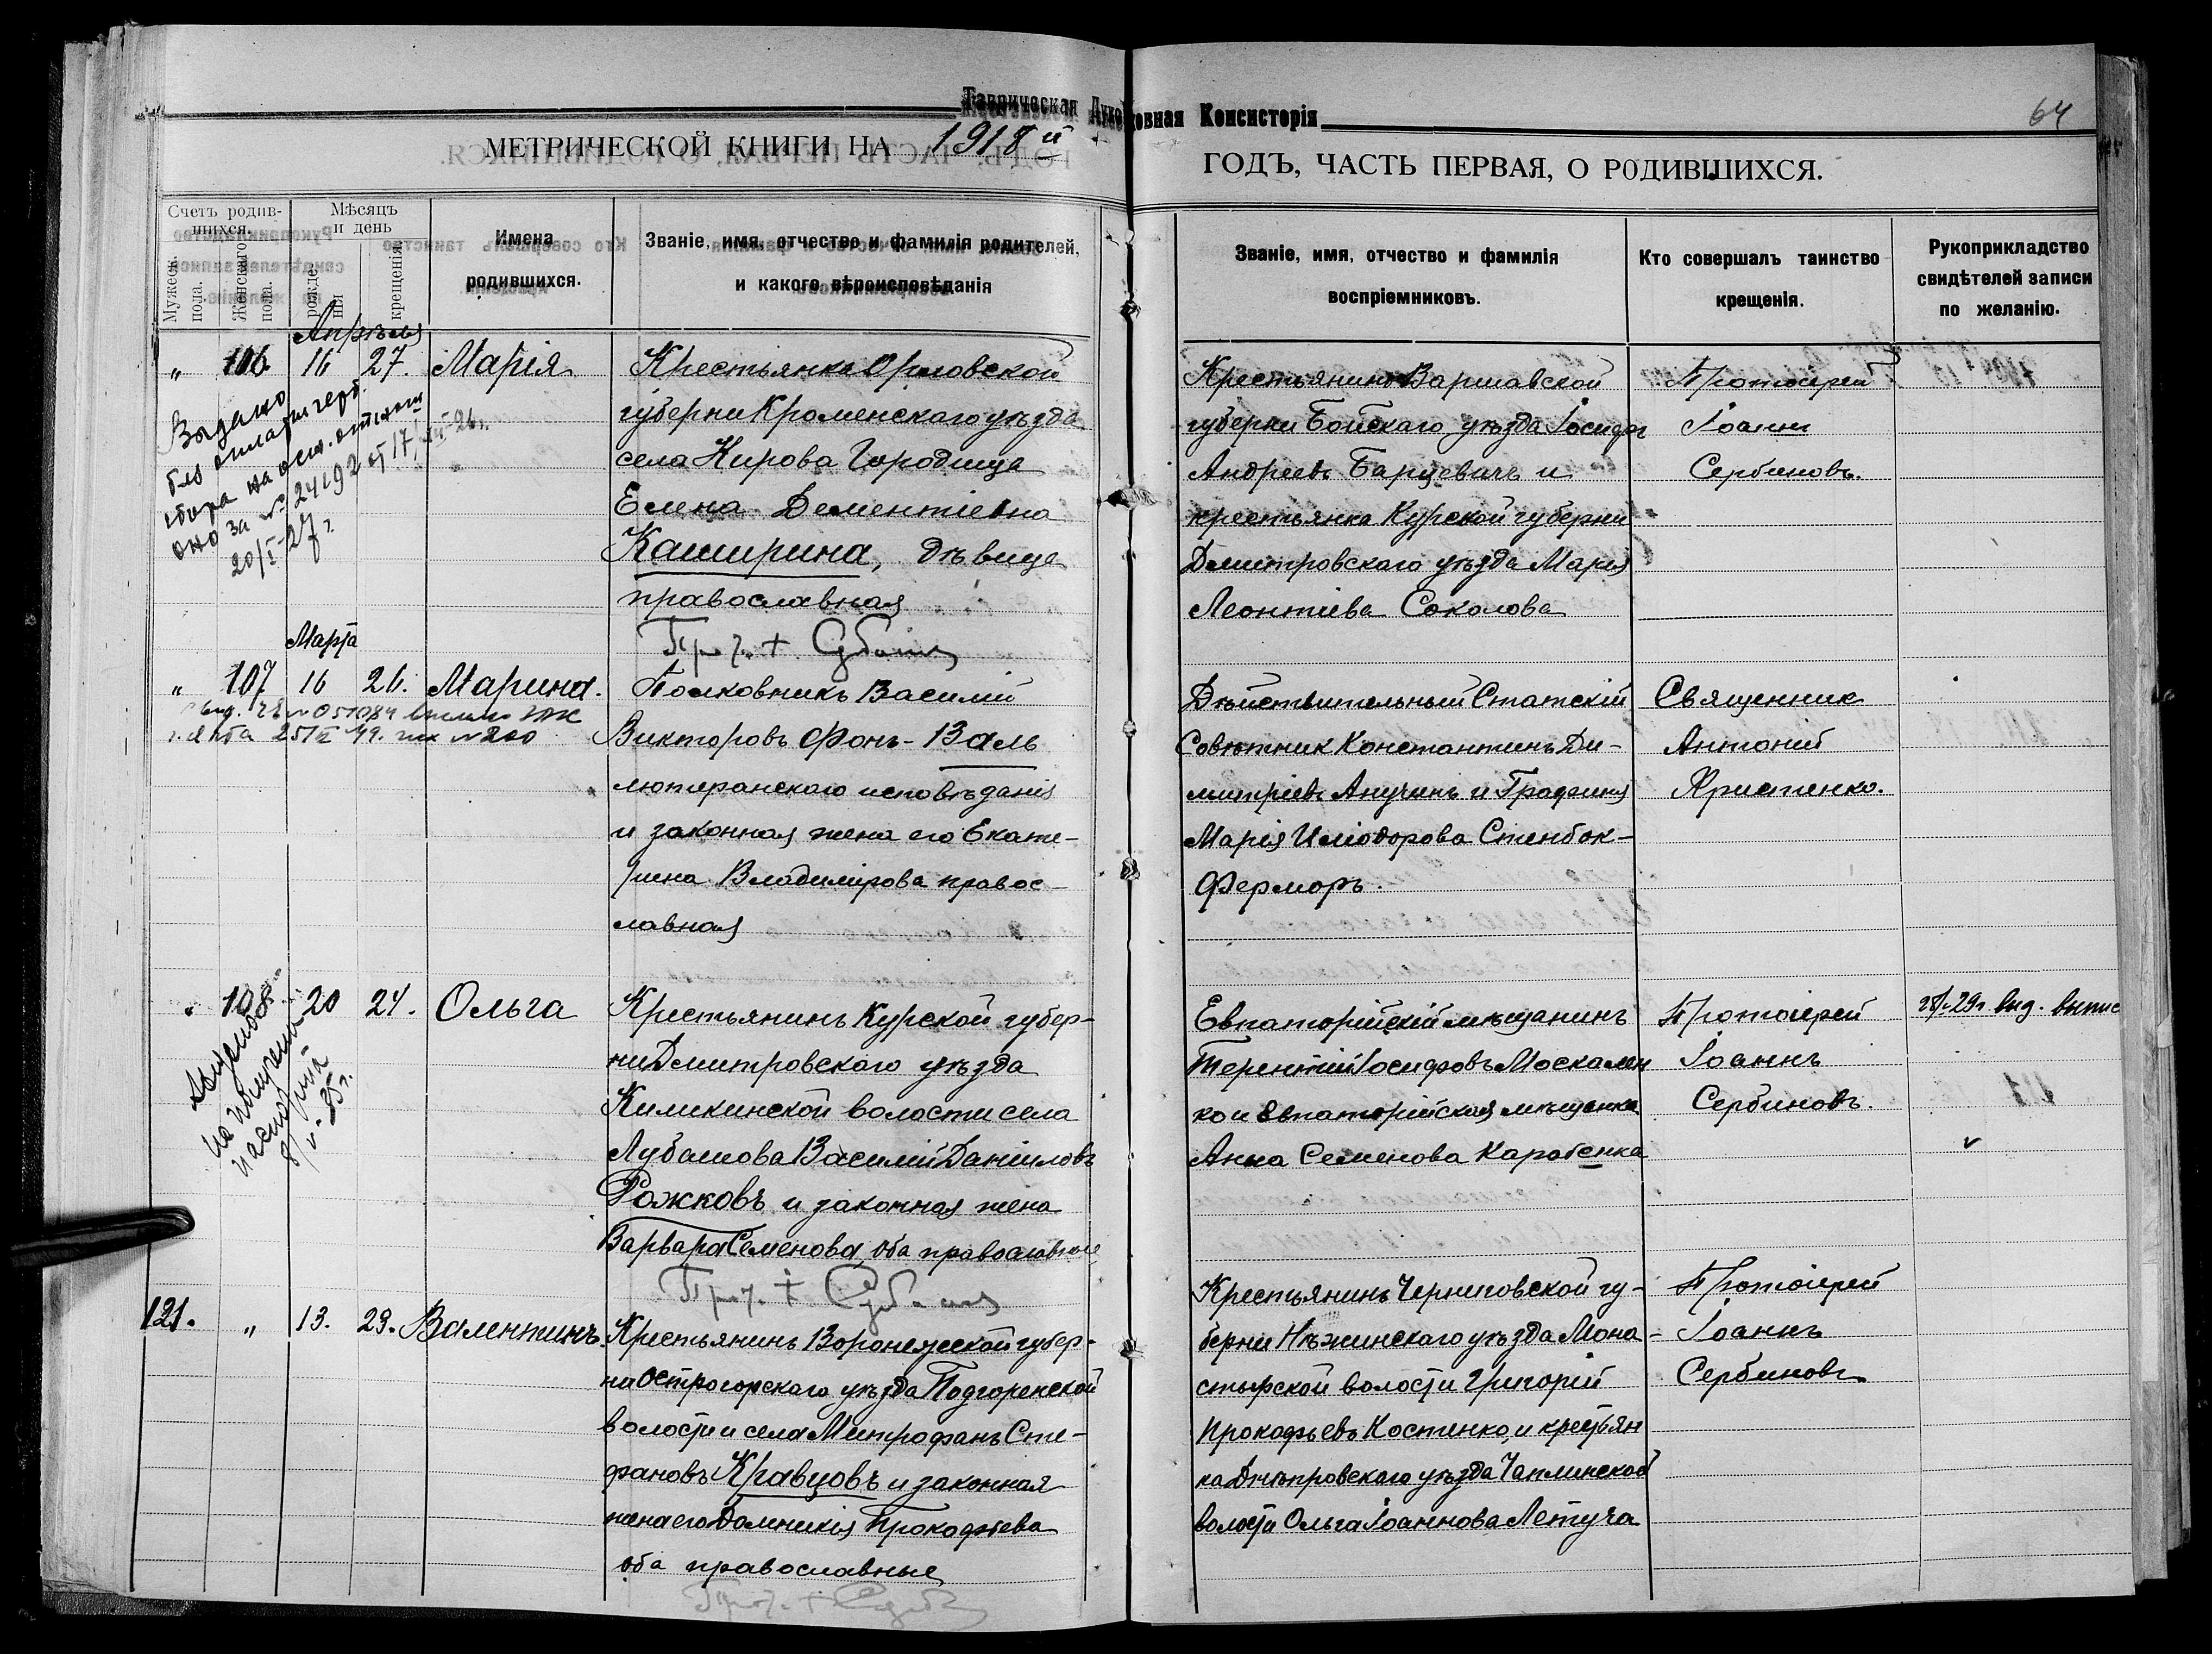 Таврическая Духовная Консисторія
64
МЕТРИЧЕСКОЙ КНИГИ НА 1918 й
ГОДЪ, ЧАСТЬ ПЕРВАЯ, О РОДИВШИХСЯ.
Счетъ родив-
шихся.
Мужеск. пола.
Женскаго пола.
Мѣсяцъ
и день
рожде
нія
крещенія
Имена
родившихся.
Званіе, имя, отчество и фамилія родителей,
и какого вѣроисповѣданія
Званіе, имя, отчество и фамилія
воспріемниковъ.
Кто совершалъ таинство
крещенія.
Рукоприкладство
свидѣтелей записи
по желанію.
Апрѣля
" 106 16 27. Марія
Выдано
без оплаты герб.
сбора на осн.
за № 24192 от 17
20/I-27г.
Крестьянка Орловской
губерни Кроменскаго уѣзда
села Кирова Городища
Елена Дементіевна
Каширина, дѣвица
православная
Крестьянинъ Варшавской
губерни уѣзда Іосифъ
Андреевъ Барцевичъ и
крестьянка Курской губерни
Дмитровскаго уѣзда Марія
Леонтіева Соколова
Протоіерей
Іоаннъ
Сербиновъ.
Марта
" 107 16 26. Марина.
Полковникъ Василій
Викторовъ фонъ-Валь
лютеранскаго исповѣданія
и законная жена его Екате-
рина Владимірова правос-
лавная
Дѣйствительный Статскій
Совѣтник Константинъ Ди-
митріевъ Анучинъ и Графиня
Марія Иліодорова Стенбок-
Ферморъ.
Священник
Антоній
Христенко.
108 20 24. Ольга
Выдано
на получение
паспорта
8/V-35г.
Крестьянинъ Курской губер-
ни Дмитровскаго уѣзда
Киликинской волости села
Лубашова Василій Даніиловъ
Рожковъ и законная жена
Варвара Семенова, оба православные
Евпаторійскій мѣщанинъ
Терентій Іосифовъ Москален
ко и Евпаторійская мѣщанка
Анна Семенова Карабенка
Протоіерей
Іоаннъ
Сербиновъ.
121. " 13. 29. Валентинъ.
Крестьянинъ Воронежской губер-
ни Острогорскаго уѣзда Подгоренской
волости и села Митрофанъ Сте-
фановъ Кравцовъ и законная
жена его Домникія Прокофіева
оба православные
Крестьянинъ Черниговской гу-
берни Нѣжинскаго уѣзда Мона-
стырской волости Григорій
Прокофьевъ Костенко, и крестьян
ка Днѣпровскаго уѣзда Чаплинской
волости Ольга Іоаннова Летуча
Протоіерей
Іоаннъ
Сербиновъ